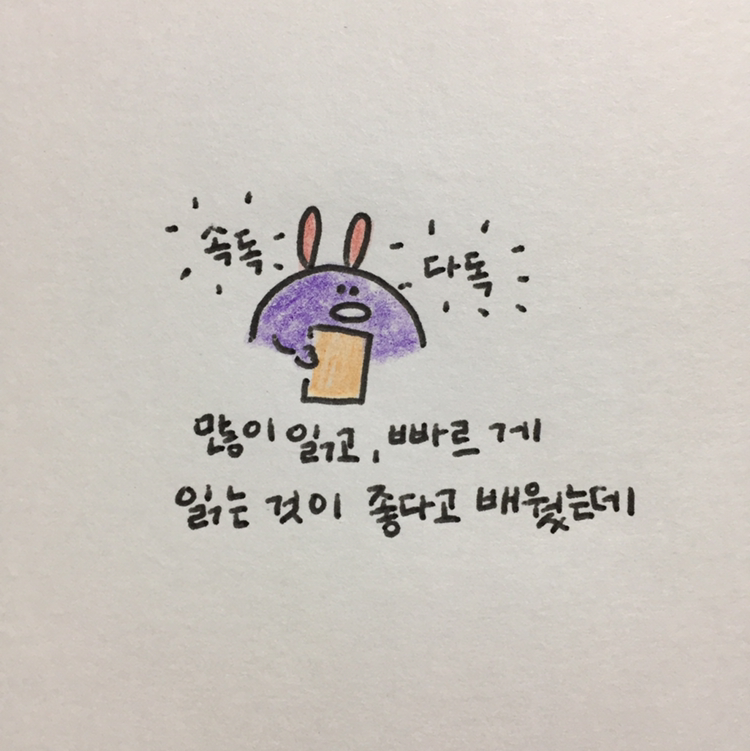 속독
다독
많이 읽고, 빠르게
읽는 것이 좋다고 배웠는데